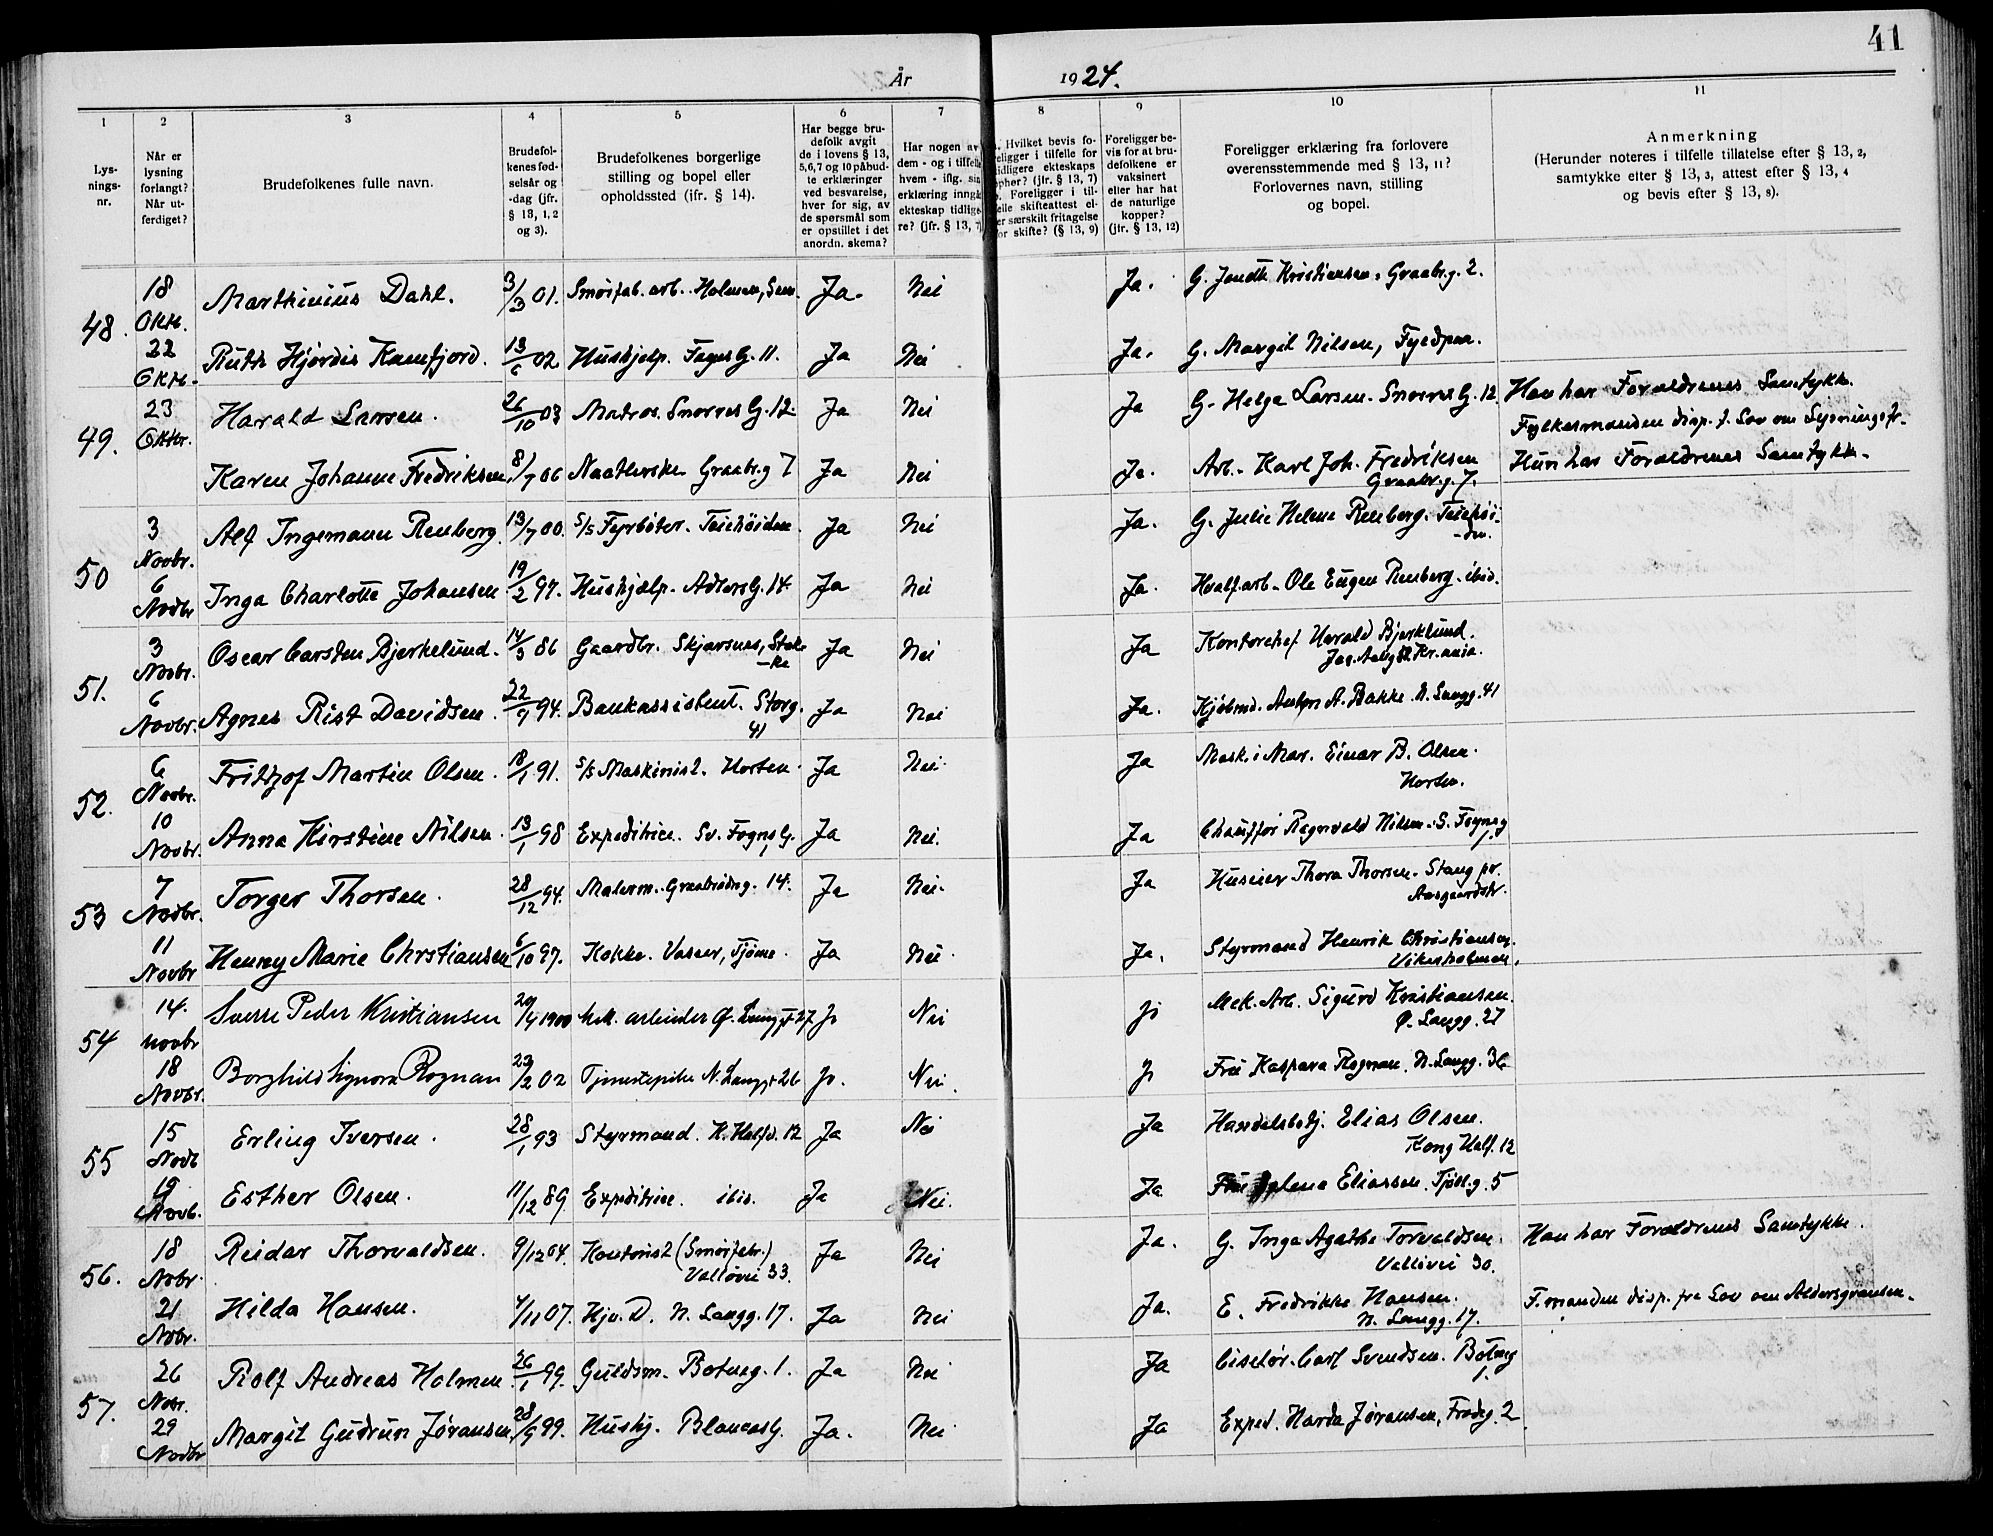 41
År 1924.
1 2 3 4 5 6 7 8 9 10 11
Lys-
nings-
nr.
Når er
lysning
forlangt?
Når ut-
ferdiget?
Brudefolkenes fulle navn.
Brudefol-
kenes fød-
selsår og
-dag (jfr.
§ 13, 1, 2
og 3).
Brudefolkenes borgerlige
stilling og bopel eller
opholdssted (ifr. § 14).
Har begge bru-
defolk avgit
de i lovens § 13,
5,6,7 og 10 påbud-
te erklæringer
ved besvarelse,
hver for sig, av
de spørsmål som
er opstillet i det
anordn. skema?
Har nogen av
dem - og i tilfelle
hvem - iflg. sin
erklæring inngå
ekteskap tidlige
re? (jfr. § 13, 7)
Hvilket bevis fo-
religger i tilfelle for
tidligere ekteskaps
ophør? (jfr. § 13, 7)
Foreligger i til-
felle skifteattest el-
er særskilt fritagelse
or skifte? (§ 13, 9)
Foreligger be-
vis for at bru-
defolkene er
vaksinert
eller har hat
de naturlige
kopper?
(jfr. § 13, 12)
Foreligger erklæring fra forlovere
overensstemmende med § 13, 11?
Forlovernes navn, stilling
og bopel.
Anmerkning
(Herunder noteres i tilfelle tillatelse efter § 13, 2,
samtykke efter § 13, 3, attest efter § 13, 4
og bevis efter § 13, 8).
48. 18 Oktb. Marthinius Dahl. 3/3 01. Smørfab. arb. Holmen, Sem. Ja. Nei Ja. G. Jendte Kristiansen. Graabr.g. 2.
22 Oktb. Ruth Hjørdis Kamfjord. 13/6 02. Hushjelp. Fayes G. 11. Ja Nei Ja. G. Margit Nilsen, Fyldpaa.
49. 23 Oktbr. Harald Larsen. 26/10 03 Matros. Snorres G. 12. Ja Nei Ja G. Helga Larsen. Snorres G. 12 Han har Forældrenes Samtykke.
Fylkesmanden disp. f. Lov om Lysningsfr.
Karen Johanne Fredriksen. 8/7 06 Naatlerske Graabr.g 7 Ja Nei Ja. Arb. Karl Joh. Fredriksen
Graabr.g. 7. Hun har Forældrenes Samtykke.
50 3 Novbr. Alf Ingemann Renberg. 13/7 00. S/S Fyrbøter. Teiehøiden. Ja Nei Ja. G. Julie Helene Renberg. Teiehøi-
-den.
6 Novbr Inga Charlotte Johansen. 19/2 97. Hushjælp. Adlers G. 14 Ja Nei Ja. Hvalf.arb. Ole Eugen Renberg. ibid.
51. 3 Novbr. Oscar Carsten Bjerkelund. 14/3 86 Gaardbr. Skjærsnes, Stok-
-ke Ja Nei Ja Kontorchef Harald Bjerklund.
Jac. Aalls Kr.ania.
6 Novbr. Agnes Rist Davidsen. 22/9 94. Bankassistent. Storg.
41 Ja Nei Ja. Kjøbmd. A. Bakke. N. Langg. 41
52. 6 Novbr. Fridtjof Martin Olsen. 18/1 91. S/S Maskinist. Horten. Ja Nei Ja Mask. i Mar. Einar B. Olsen.
Horten.
10 Novbr. Anna Kirstine Nilsen. 13/1 98 Expeditrice. Sv. Foyns G. 1 Ja Nei. Ja Chauffør Ragnvald Nilsen. S. Foynsg
1.
53 7 Novbr. Torger Thorsen. 28/12 94. Malerm. Graabrødreg. 14. Ja Nei. Ja Huseier Thora Thorsen. Stang pr.
Aasgaardstr.
11 Novbr Henny Marie Chrstiansen 6/10 97. Kokke. Vasser, Tjøme. Ja Nei Ja. Styrmand Henrik Christiansen.
54 14. novbr Sverre Peder Kristiansen 20/4 1900 Mek. arbeider Ø. Langgt 27 Ja Nei Ja Mek. Arb. Sigurd Kristiansen.
Ø. Langg. 27
18 Novbr. Borghild Signora Rognan 23/2 02 Tjenestepike N. Langgt 26 Ja. Nei. Ja Frü Kaspara Rognan. N. Langg. 36
55 15 Novb Erling Iversen. 28/1 93 Styrmand. K. Halfd. 12 Ja Nei Ja Handelsbetj. Elias Olsen.
Kong Half. 12
19 Novb. Esther Olsen. 11/12 89. Expeditrice. ibid. Ja Nei. Ja Früe Eliassen. Tjøll.g. 5
56. 18 Nobr. Reidar Thorvaldsen. 9/12 04. Kontorist (Smørfabr.)
Valløvei 33. Ja Nei Ja. G. Inga Agathe Torvaldsen.
Valløvei 30. Han har Forældrenes Samtykke.
21 Nobr. Hilda Hansen. 4/11 07. Hjv. D. N. Langg. 17. Ja Nei Ja. E. Fredrikke Hansen.
N. Langg. 17. F.manden disp. fra Lov om Aldersgrænsen.
57. 26 Nobr. Rolf Andreas Holmen. 26/1 99. Guldsm. Botneg. 1. Ja Nei Ja Ciselør. Carl Svendsen. Botneg
1.
29 Novbr Margit Gudrun Jøransen. 28/9 99. Hushj. Blancas G. Ja. Nei Ja Exped. Harda Jøransen, Frodeg. 2